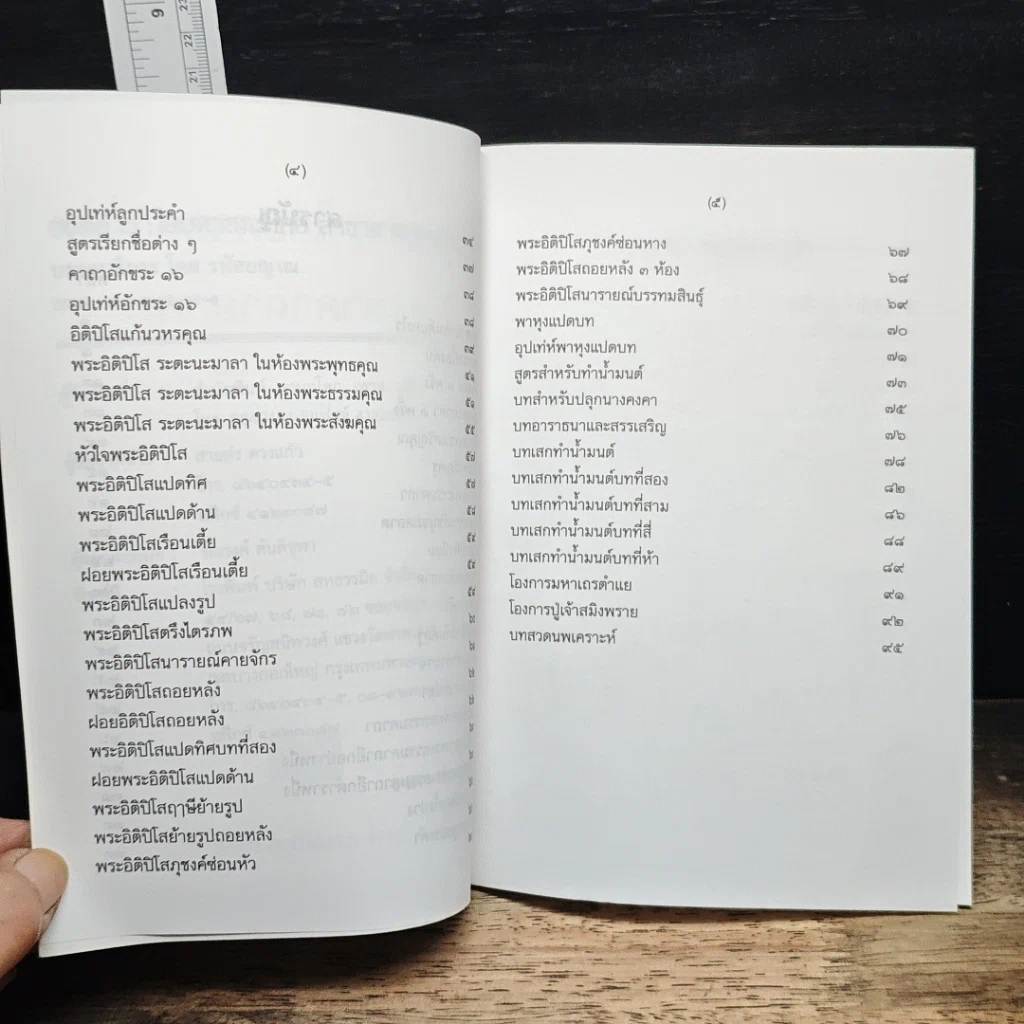 (๔)
อุปเท่ห์ลูกประคำ ๓๔
สูตรเรียกชื่อต่าง ๆ ๓๗
คาถาอักขระ ๑๖ ๓๘
อุปเท่ห์อักขระ ๑๖ ๓๘
อิติปิโสแก้นวหรคุณ ๓๙
พระอิติปิโส ระตะนะมาลา ในห้องพระพุทธคุณ ๔๑
พระอิติปิโส ระตะนะมาลา ในห้องพระธรรมคุณ ๕๑
พระอิติปิโส ระตะนะมาลา ในห้องพระสังฆคุณ ๕๕
หัวใจพระอิติปิโส ๕๗
พระอิติปิโสแปดทิศ
พระอิติปิโสแปดด้าน
พระอิติปิโสเรือนเตี้ย
ฝอยพระอิติปิโสเรือนเตี้ย
พระอิติปิโสแปลงรูป
พระอิติปิโสตรึงไตรภพ
พระอิติปิโสนารายณ์คายจักร
พระอิติปิโสถอยหลัง
ฝอยอิติปิโสถอยหลัง
พระอิติปิโสแปดทิศบทที่สอง
ฝอยพระอิติปิโสแปดด้าน
พระอิติปิโสฤๅษีย้ายรูป
พระอิติปิโสย้ายรูปถอยหลัง
พระอิติปิโสภุชงค์ซ่อนหัว
(๕)
พระอิติปิโสภุชงค์ซ่อนหาง ๖๗
พระอิติปิโสถอยหลัง ๓ ห้อง ๖๘
พระอิติปิโสนารายณ์บรรทมสินธุ์ ๖๙
พาหุงแปดบท ๗๐
อุปเท่ห์พาหุงแปดบท ๗๑
สูตรสำหรับทำน้ำมนต์ ๗๓
บทสำหรับปลุกนางคงคา ๗๕
บทอาราธนาและสรรเสริญ ๗๖
บทเสกทำน้ำมนต์ ๗๘
บทเสกทำน้ำมนต์บทที่สอง ๘๒
บทเสกทำน้ำมนต์บทที่สาม ๘๖
บทเสกทำน้ำมนต์บทที่สี่ ๘๘
บทเสกทำน้ำมนต์บทที่ห้า ๘๙
โองการมหาเถรตำแย ๙๑
โองการปู่เจ้าสมิงพราย ๙๒
บทสวดนพเคราะห์ ๙๕